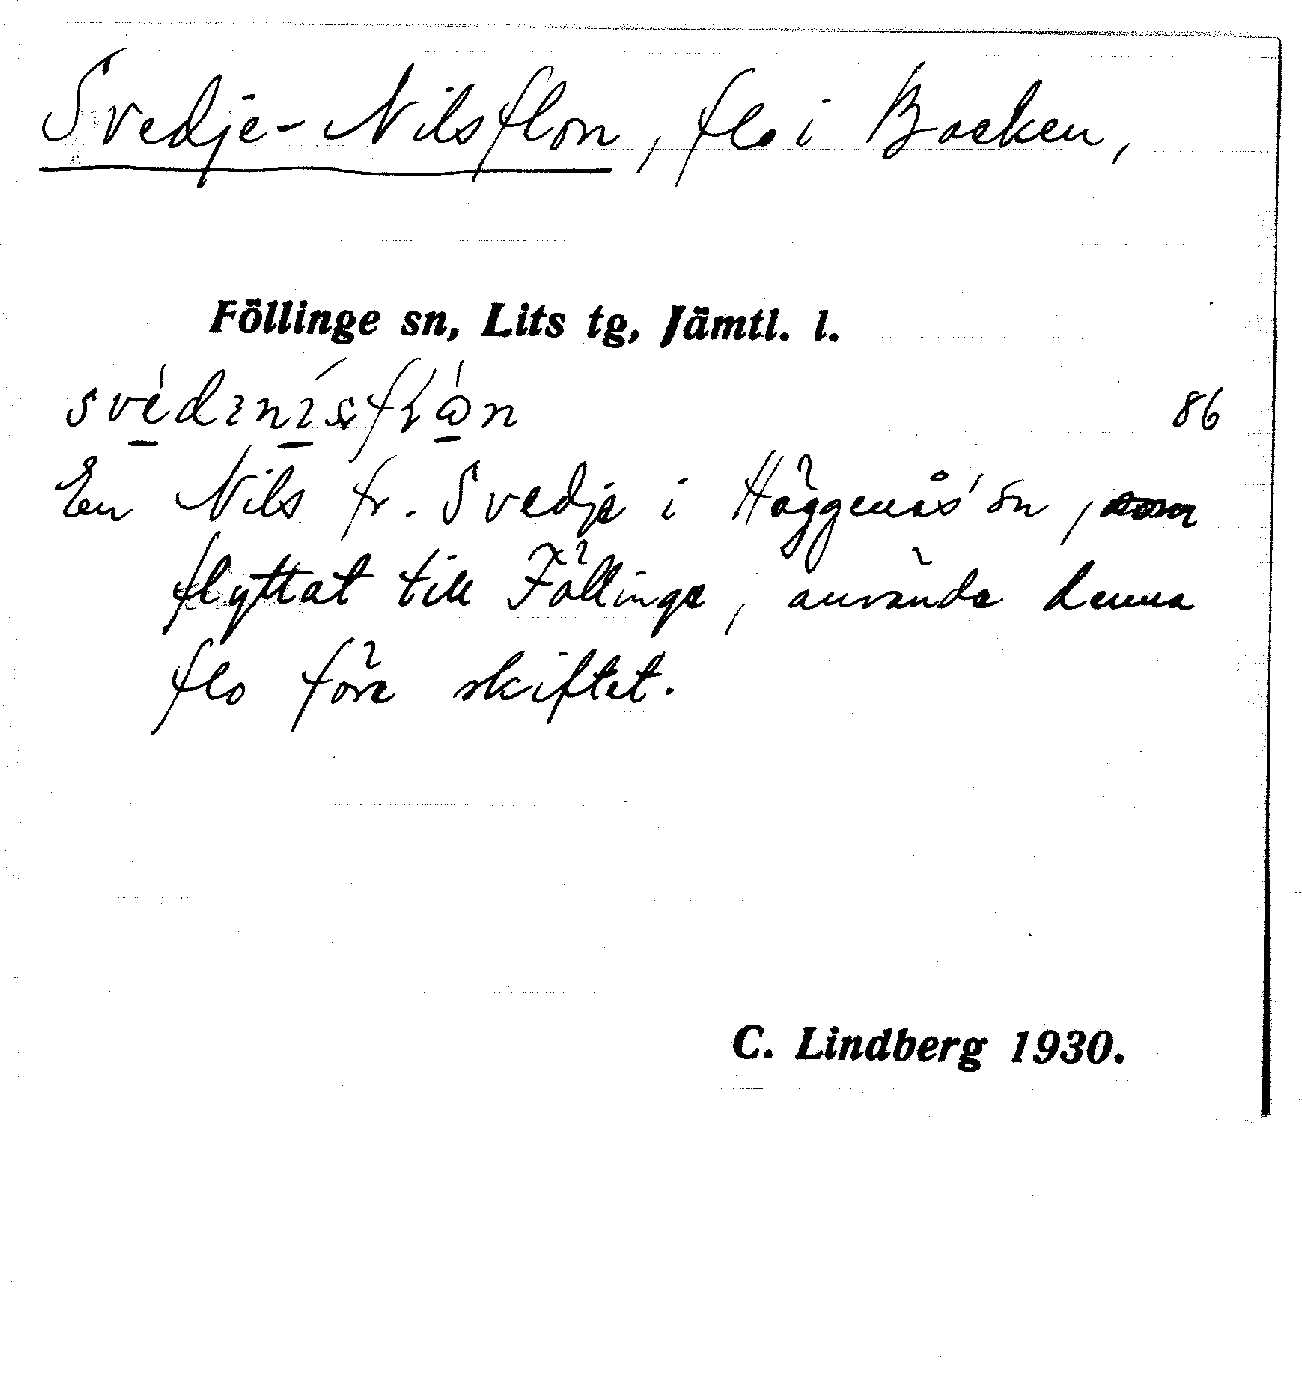 Svedje-Nilsflon, flo i Backen,
Föllinge sn, Lits tg, Jämtl. l.
86
En Nils fr. Svedje i Häggenås' sn,
flyttat till Föllinge, använde denna
flo före skiftet.
C. Lindberg 1930.